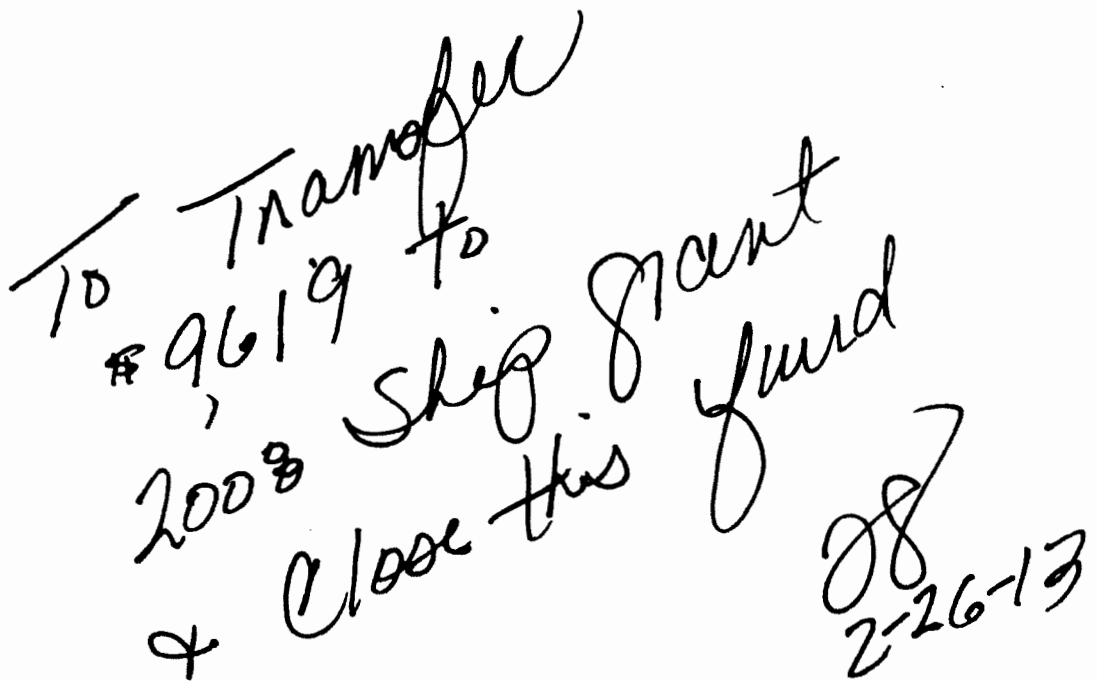 To Transfer
$9,619 to
2008 Ship grant
& Close this fund
2-26-13